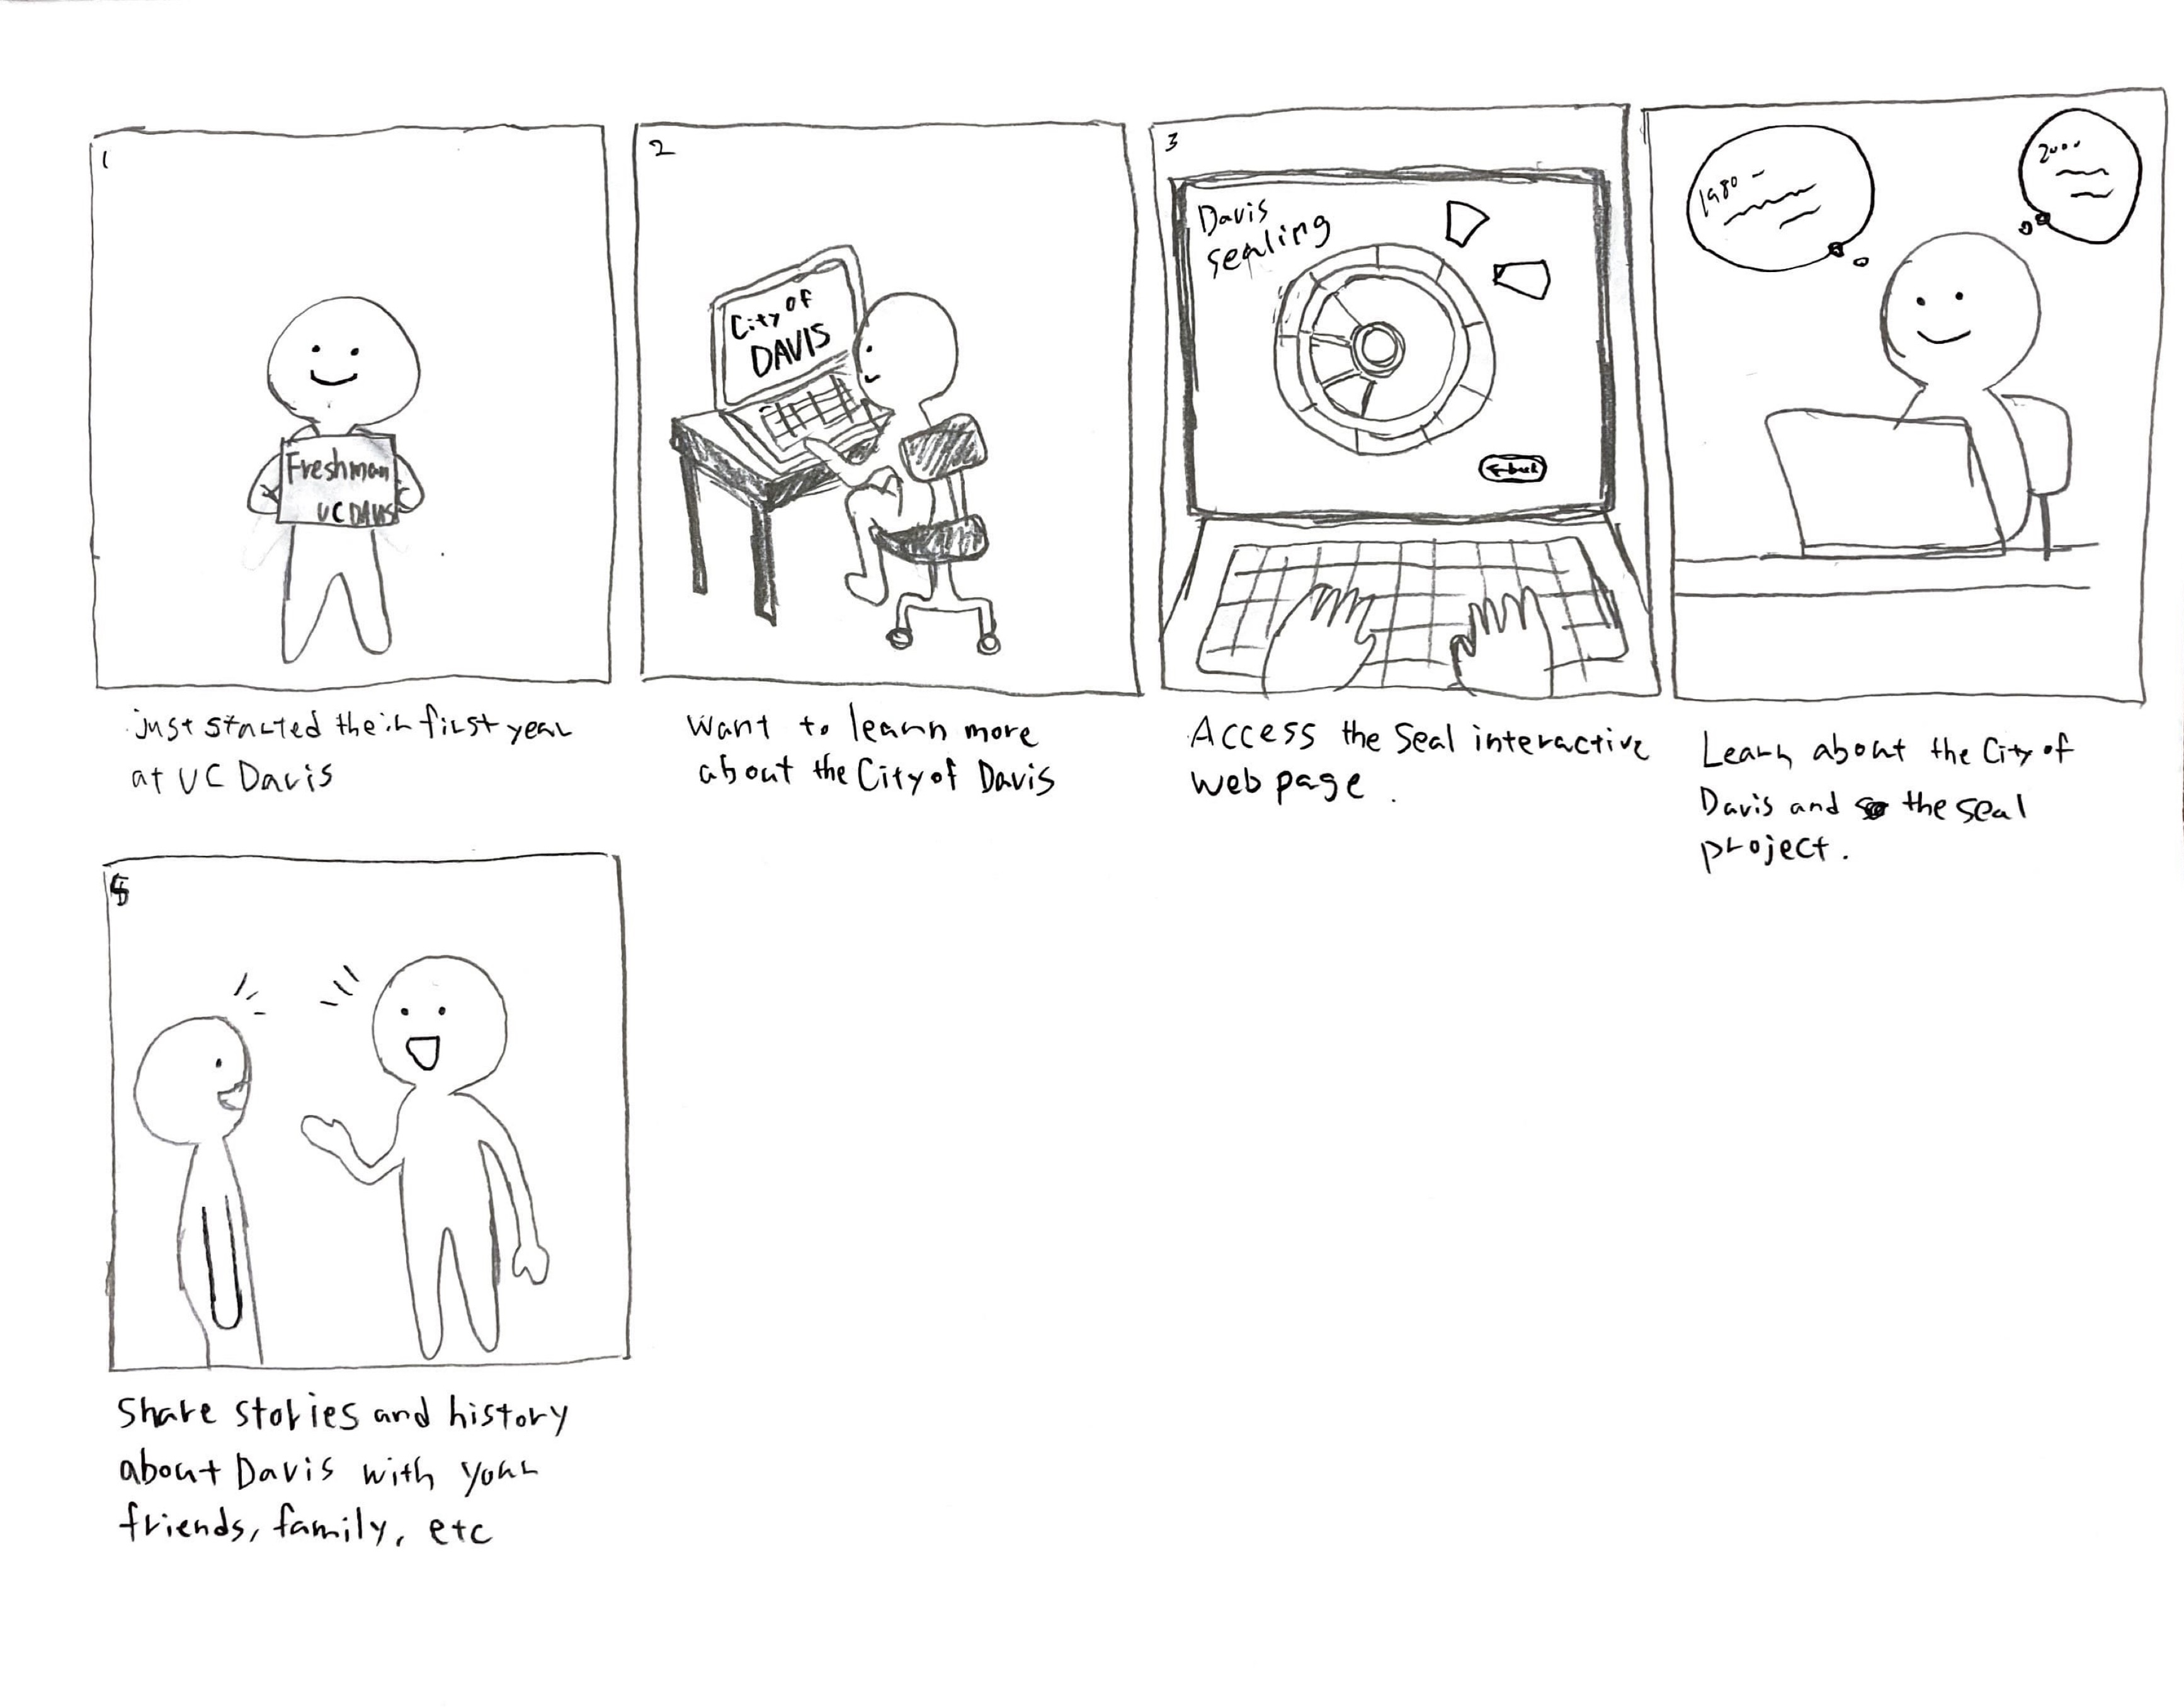 1
Freshman
UC DAVIS
just started their first year
at UC Davis
2
City of
DAVIS
want to learn more
about the City of Davis
3
Davis
sealing
←back
Access the Seal interactive
web page.
1980 -
2000
Learn about the City of
Davis and the seal
project.
5
Share stories and history
about Davis with your
friends, family, etc